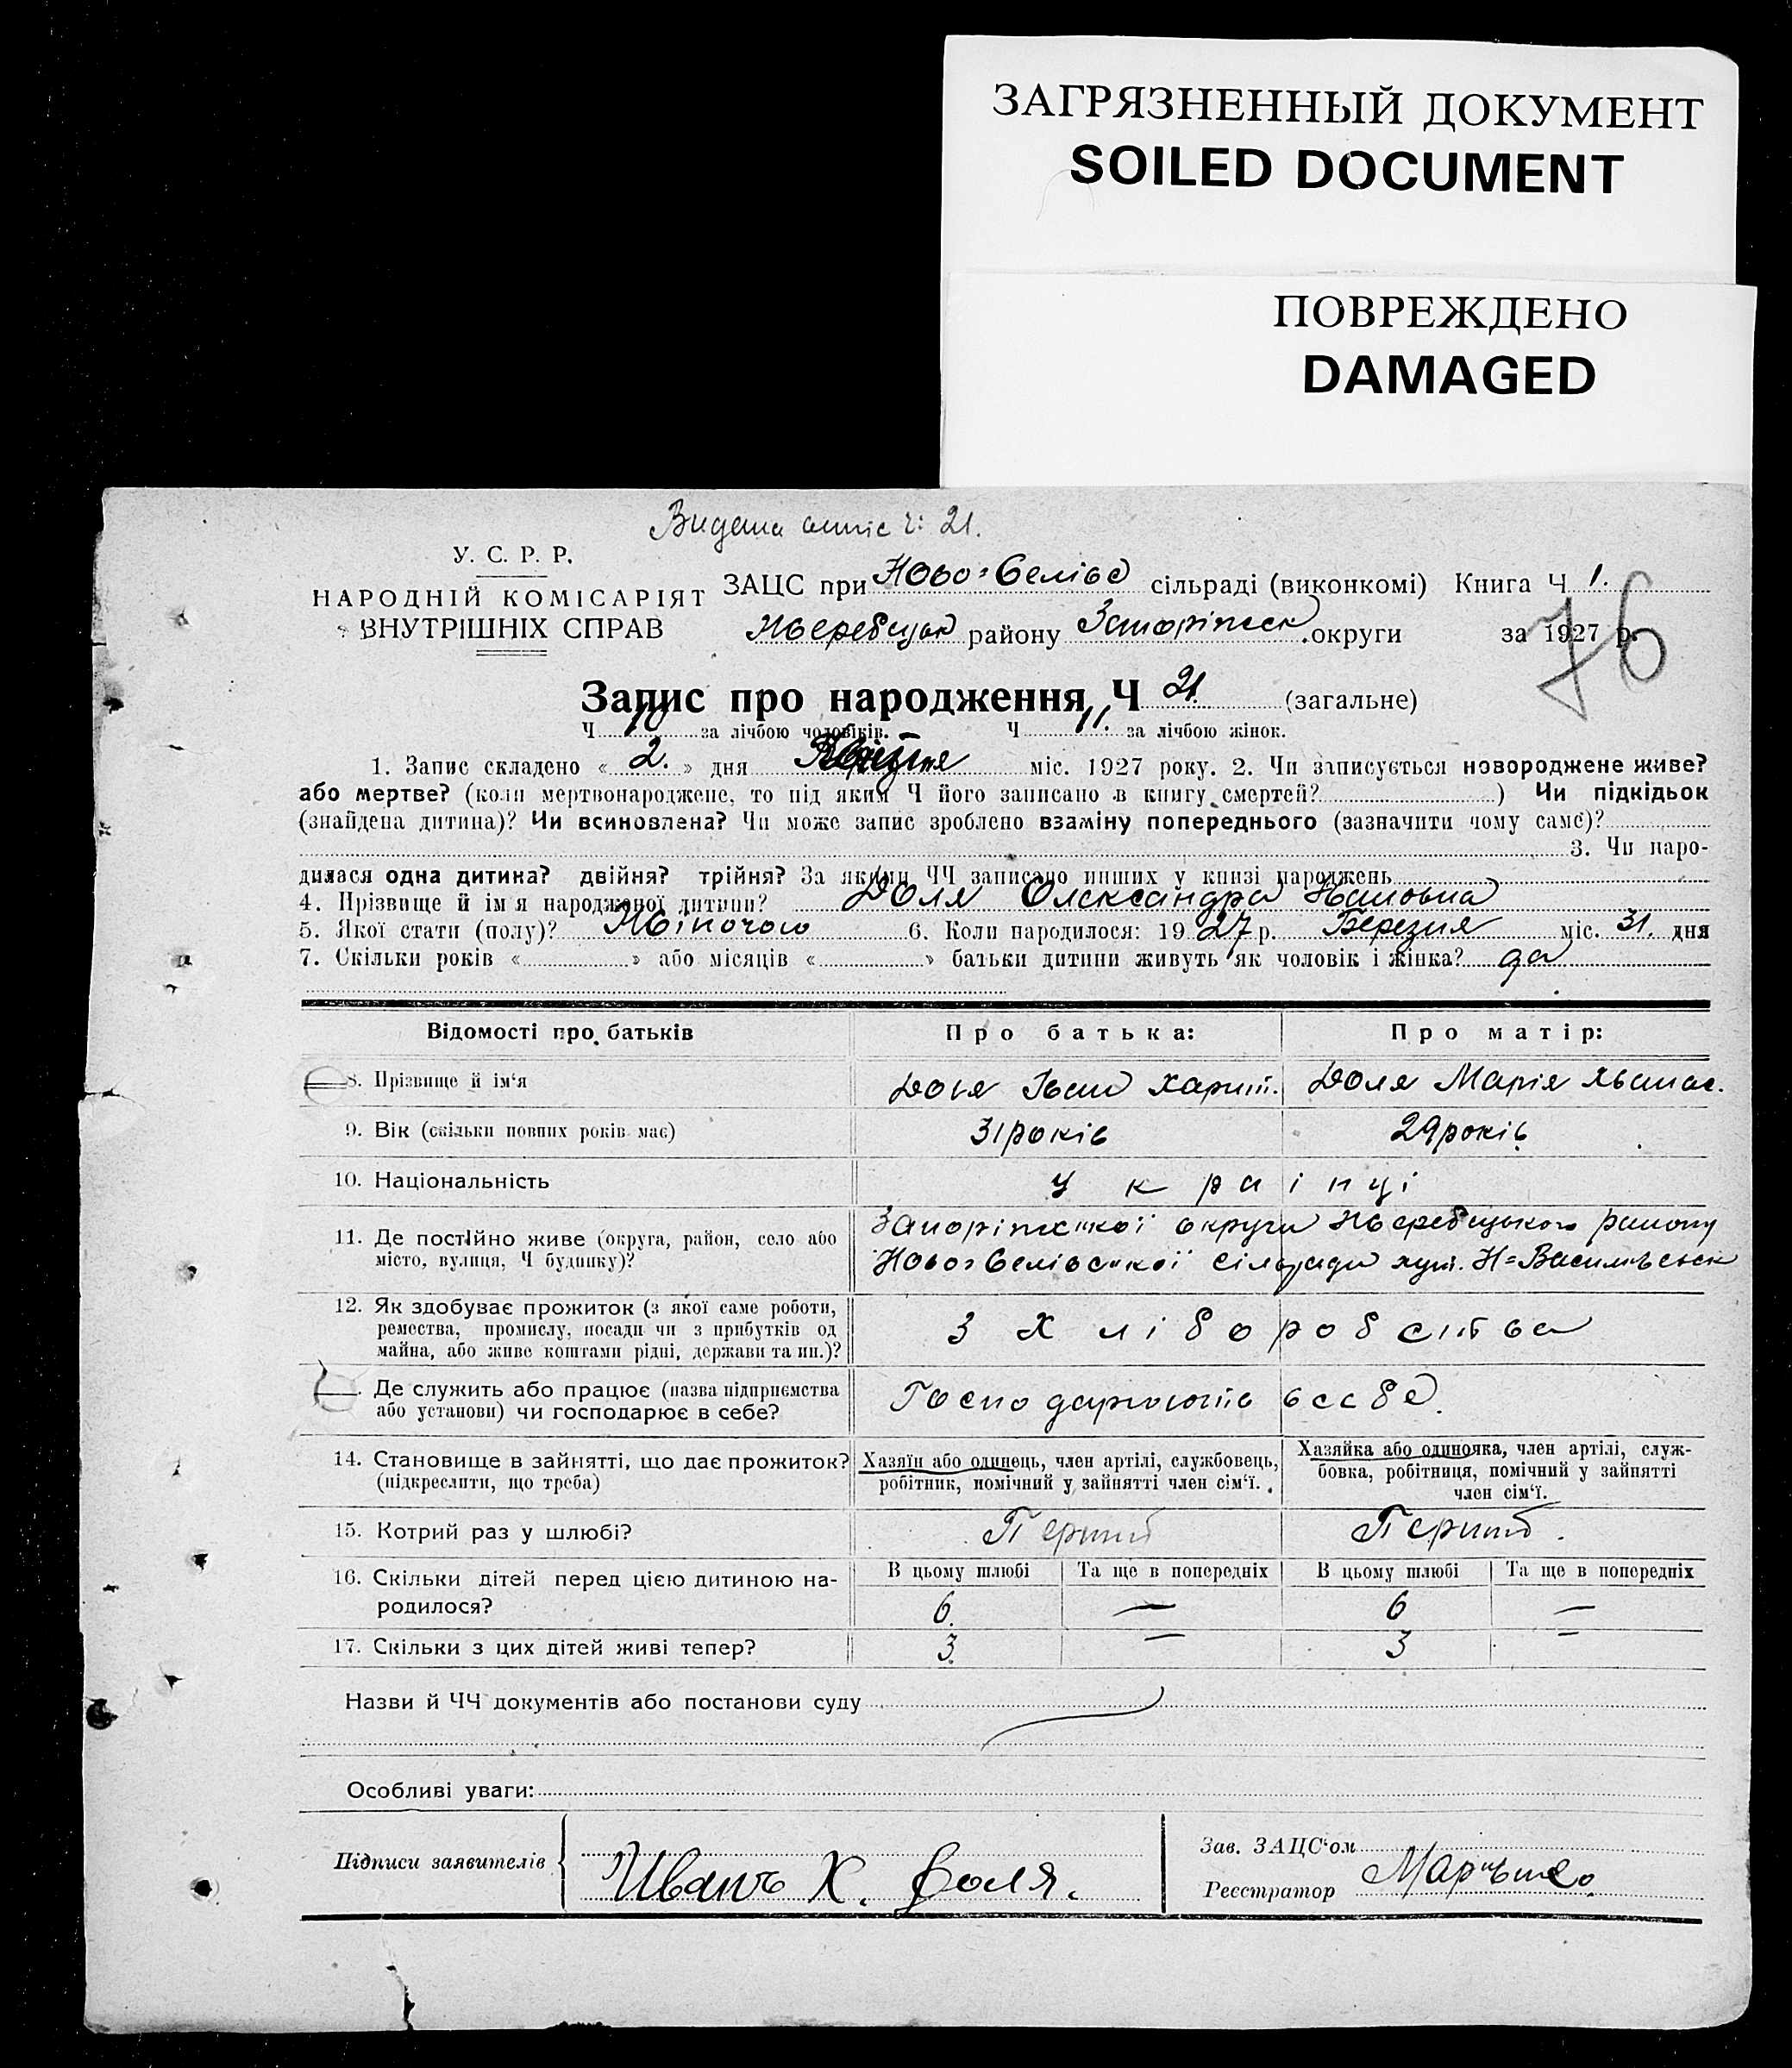 ЗАГРЯЗНЕННЫЙ ДОКУМЕНТ
SOILED DOCUMENT
ПОВРЕЖДЕНО
DAMAGED
Ч: 21.
У. С. Р. Р.
НАРОДНІЙ КОМІСАРІЯТ
ВНУТРІШНІХ СПРАВ
ЗАЦС при Ново=Селівс сільраді (виконкомі) Книга Ч 1.
Жеребецьк району Запоріжськ округи за 1927 р.
76
Запис про народження Ч 21. (загальне)
Ч 10 за лічбою чоловіків. Ч 11. за лічбою жінок.
1. Запис складено « 2. » дня міс. 1927 року. 2. Чи записується новороджене живе?
або мертве? (коли мертвонароджене, то під яким Ч його записано в книгу смертей? ) Чи підкідьок
(знайдена дитина)? Чи всиновлена? Чи може запис зроблено взаміну попереднього (зазначити чому саме)?
3. Чи наро-
дилася одна дитина? двійня? трійня? За якими ЧЧ записано инших у книзі народжень
4. Прізвище й ім'я народженої дитини? Доля Олександра Ивановна
5. Якої стати (полу)? Жіночою 6. Коли народилося: 1927 р. Березня міс. 31. дня
7. Скільки років « » або місяців « » батьки дитини живуть як чоловік і жінка? да
Відомості про батьків Про батька: Про матір:
8. Прізвище й ім'я Доля Іван Харит. Доля Марія
9. Вік (скільки повних років має) 31 років 29 років
10. Національність Українці
11. Де постійно живе (округа, район, село або
місто, вулиця, Ч будинку)?
Запоріжської округи Жеребецького району
Ново=Селівської сільради хут. Н=Васильевськ
12. Як здобуває прожиток (з якої саме роботи,
ремества, промислу, посади чи з прибутків од
майна, або живе коштами рідні, держави та ин.)?
З Хліборобства
Де служить або працює (назва підприємства
або установи) чи господарює в себе?
Господарюють в себе.
14. Становище в зайнятті, що дає прожиток?
(підкреслити, що треба)
Хазяїн або одинець, член артілі, службовець,
робітник, помічний у зайнятті член сім'ї.
Хазяйка або одинокa, член артілі, служ-
бовка, робітниця, помічний у зайнятті
член сім'ї.
15. Котрий раз у шлюбі? Перший Перший.
16. Скільки дітей перед цією дитиною на-
родилося?
В цьому шлюбі Та ще в попередніх В цьому шлюбі Та ще в попередніх
6. — 6 —
17. Скільки з цих дітей живі тепер? 3. — 3 —
Назви й ЧЧ документів або постанови суду
Особливі уваги:
Підписи заявителів Иванъ Х. Доля.
Зав. ЗАЦС'ом
Реєстратор